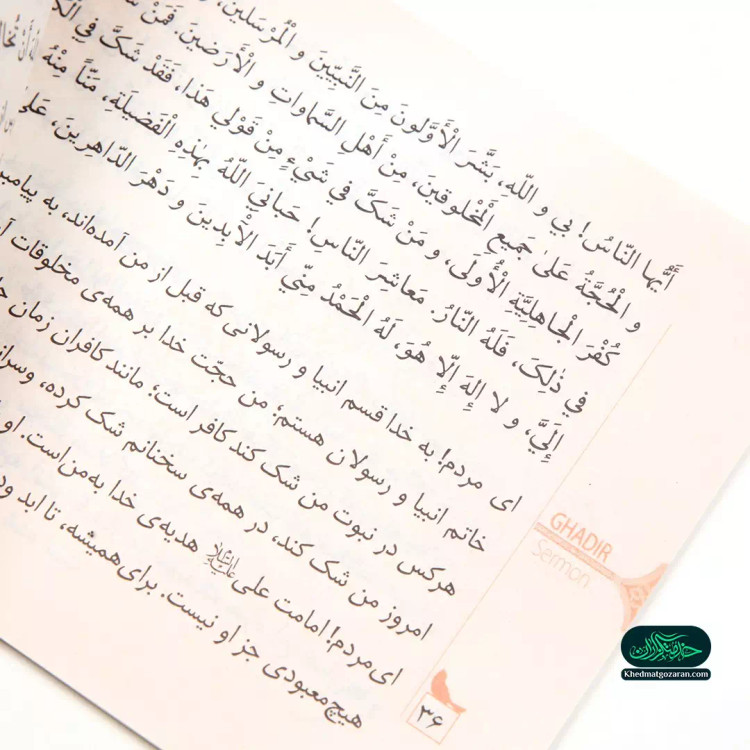 النَّبِيِّينَ وَ الْمُرْسَلِينَ،
أَيُّهَا النَّاسُ! بِي وَ اللَّهِ، بَشَّرَ الْأَوَّلُونَ مِنَ النَّبِيِّينَ وَ الْمُرْسَلِينَ،
وَ الْحُجَّةُ عَلَىٰ جَمِيعِ الْمَخْلُوقِينَ، مِنْ أَهْلِ السَّمَاوَاتِ وَ الْأَرَضِينَ. فَمَنْ
كُفْرَ الْجَاهِلِيَّةِ الْأُولَى، وَ مَنْ شَكَّ فِي شَيْءٍ مِنْ قَوْلِي هَذَا، فَقَدْ شَكَّ فِي
فِي ذٰلِكَ، فَلَهُ النَّارُ. مَعَاشِرَ النَّاسِ! حَبَانِيَ اللَّهُ بِهَذِهِ الْفَضِيلَةِ، مَنّاً مِنْهُ
إِلَيَّ، وَ لَا إِلَهَ إِلَّا هُوَ، لَهُ الْحَمْدُ مِنِّي أَبَدَ الْآبِدِينَ وَ دَهْرَ الدَّاهِرِينَ، عَلَى
ای مردم! به خدا قسم انبیا و رسولانی که قبل از من آمده‌اند، به
خاتم انبیا و رسولان هستم؛ من حجّت خدا بر همه‌ی مخلوقات
هرکس در نبوت من شک کند کافر است؛ مانند کافران زمان
امروز من شک کند، در همه‌ی سخنانم شک کرده،
ای مردم! امامت علی علیه‌السلام هدیه‌ی خدا به من است. او
هیچ معبودی جز او نیست. برای همیشه، تا ابد
GHADIR
Sermon
۳۶
خدمتگزاران
Khedmatgozaran.com